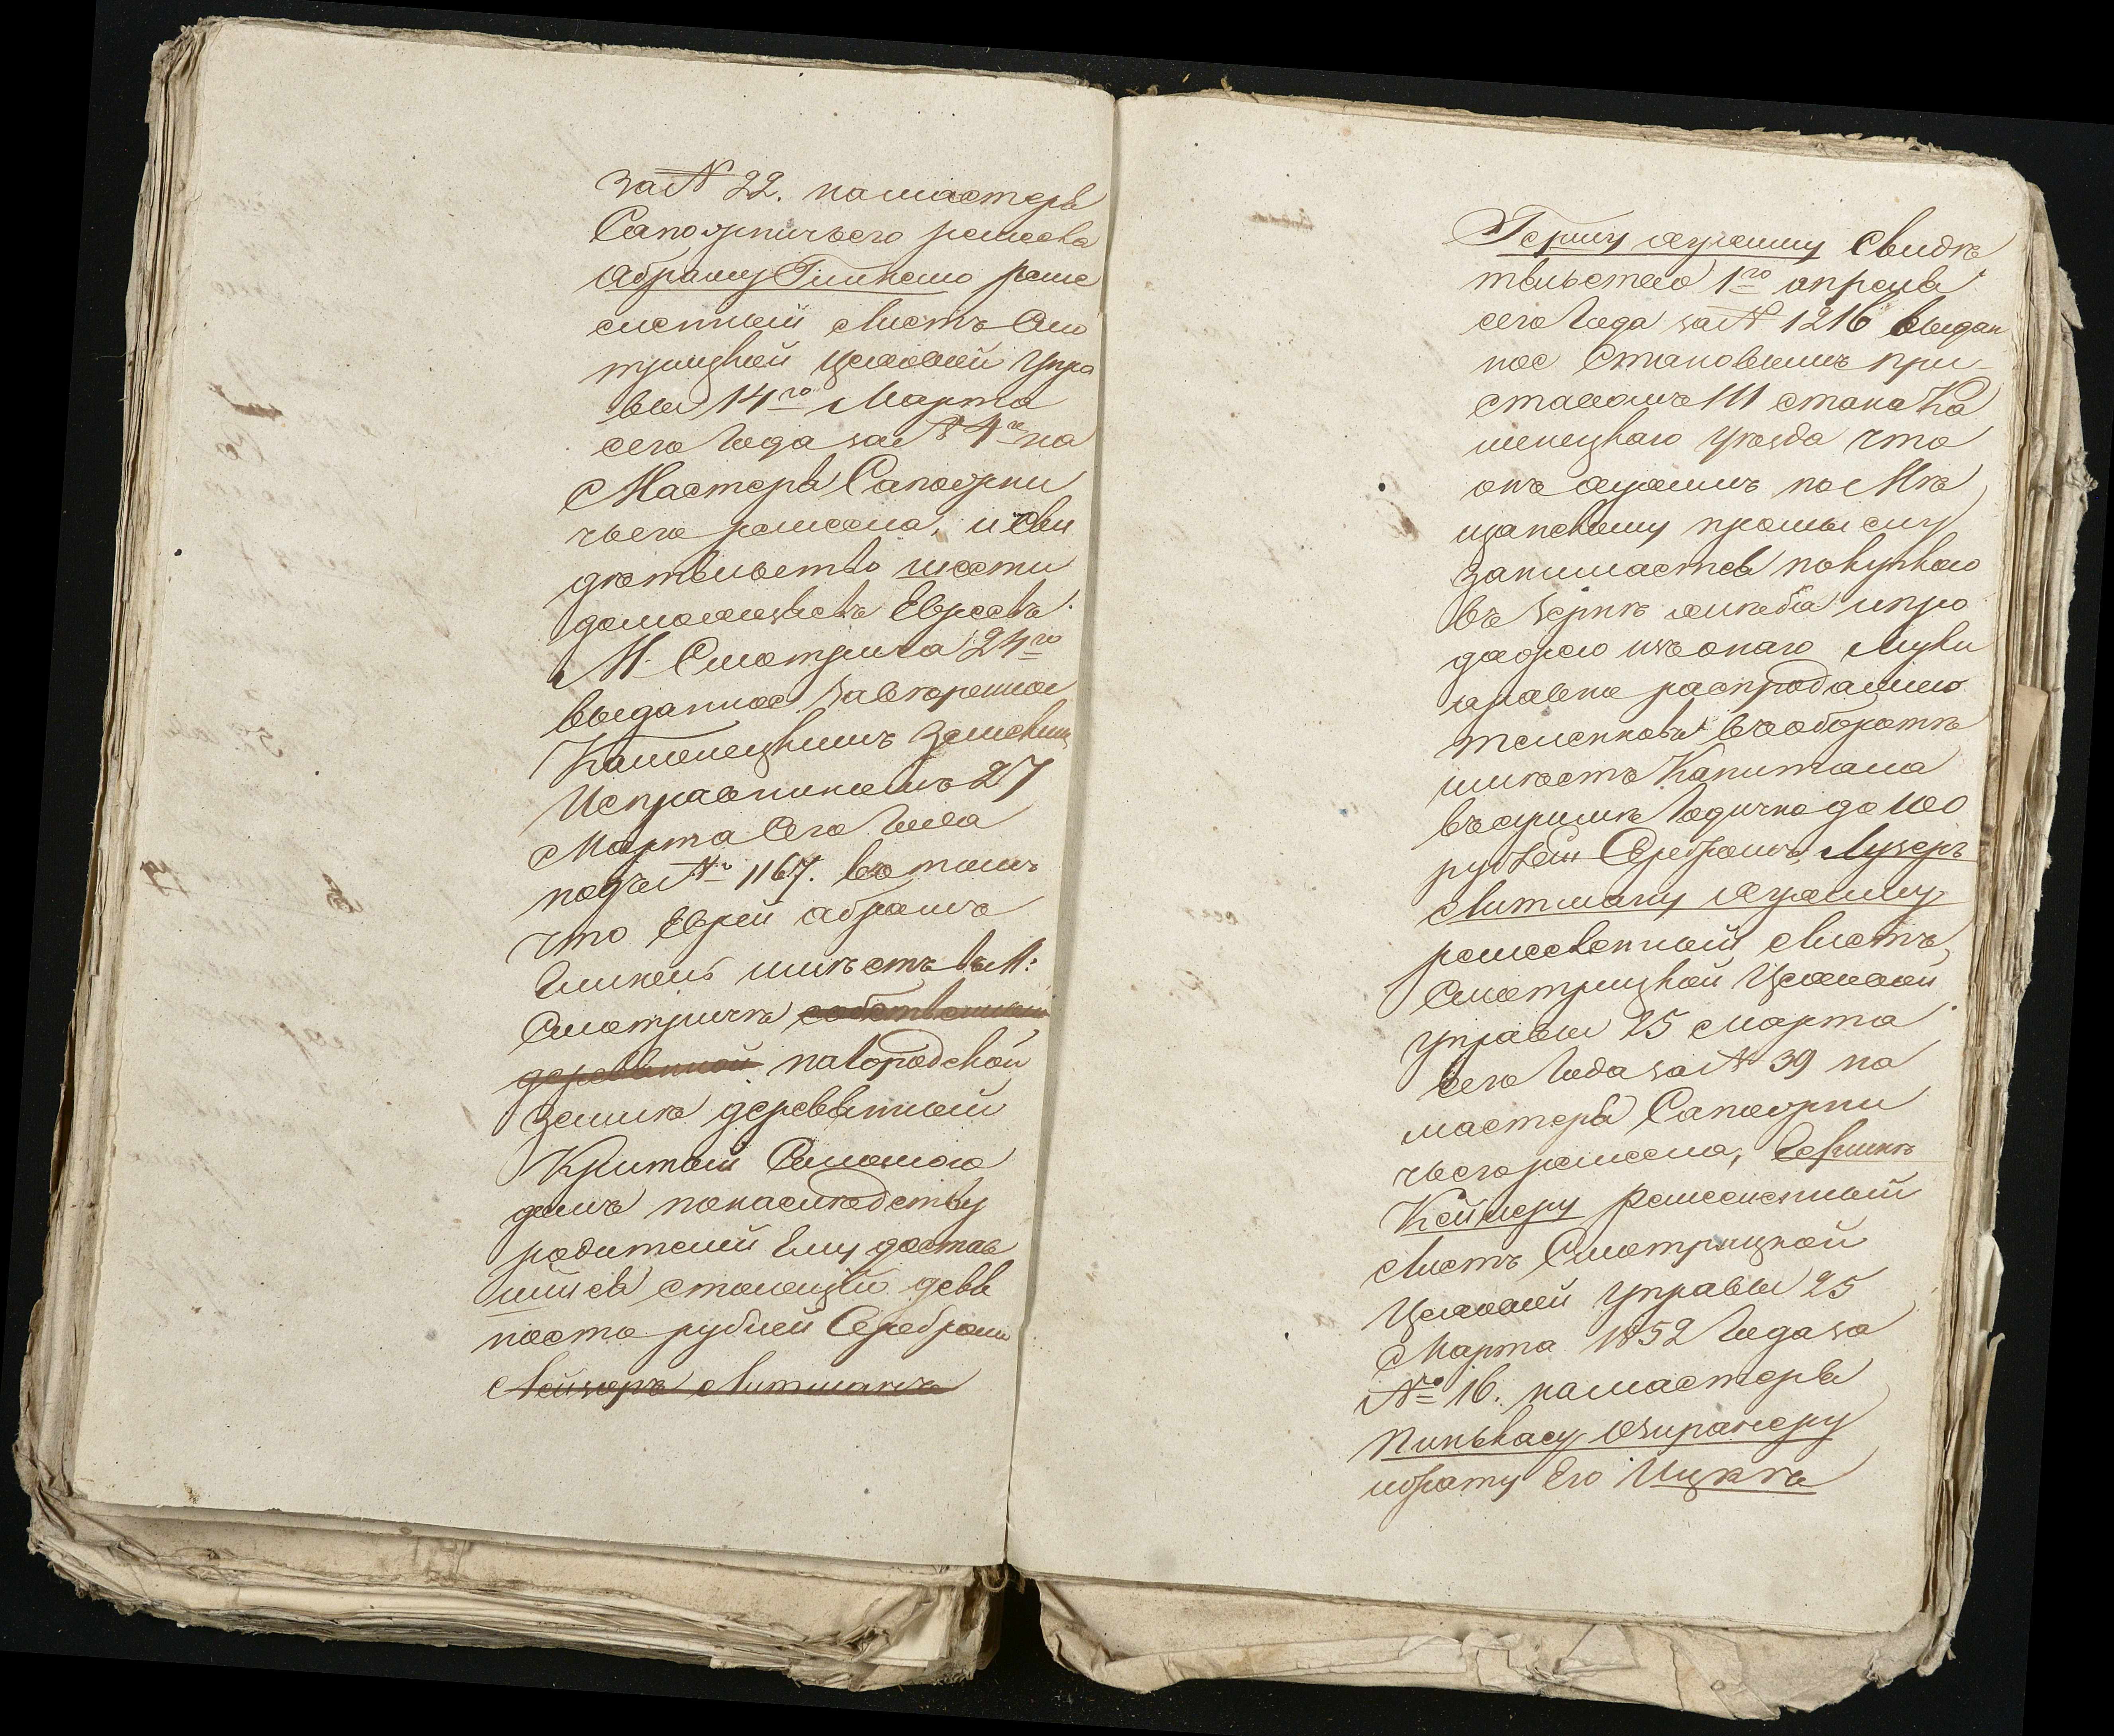 за № 22. на мастера
Сапожничьего ремесла
Абраму Гликелю реме
сленный Листъ Смо
трицкой Цеховой Упра
вы 14го Марта
сего Года за № 4 на
Мастера Сапожни
чьего ремесла, и сви
детельство шести
домохозяевъ Евреевъ
М. Смотрича 24го
выданное
Каменецкимъ Земским
Исправникомъ 27
Марта Сего Года
подъ № 1167. въ томъ
что Еврей Абрамъ
Гликель имеетъ въ М:
Смотриче собственный
деревянной на Городской
земле деревянный
Критый Соломою
домъ по наследству
родителей Ему достав
шийся стоющий девя
носто рублей Серебром
Лейзеръ Литманъ
Гершу Ауламу Свиде
тельство 1го апреля
сего Года за № 1216 выдан
ное Становымъ при-
ставомъ III стана Ка
менецкаго Уезда что
онъ по Ме
щанскому промыслу
занимается покупкою
въ зерне хлеба и про
дажею изъ онаго Муки
имеетъ Капитала
Годично до 100
рублей Серебромъ, Лузеръ
Литману Ауламу
ремесленный Листъ
Смотрицкой Цеховой
управы 25 Марта
сего Года за № 39 на
мастера Сапожни
чьего ремесла, Гершке
Кеймеру Ремесленный
Листъ Смотрицкой
Цеховой Управы 25
Марта 1852 Года за
№ 16. на мастера
Пинькасу
и брату Его Ицке